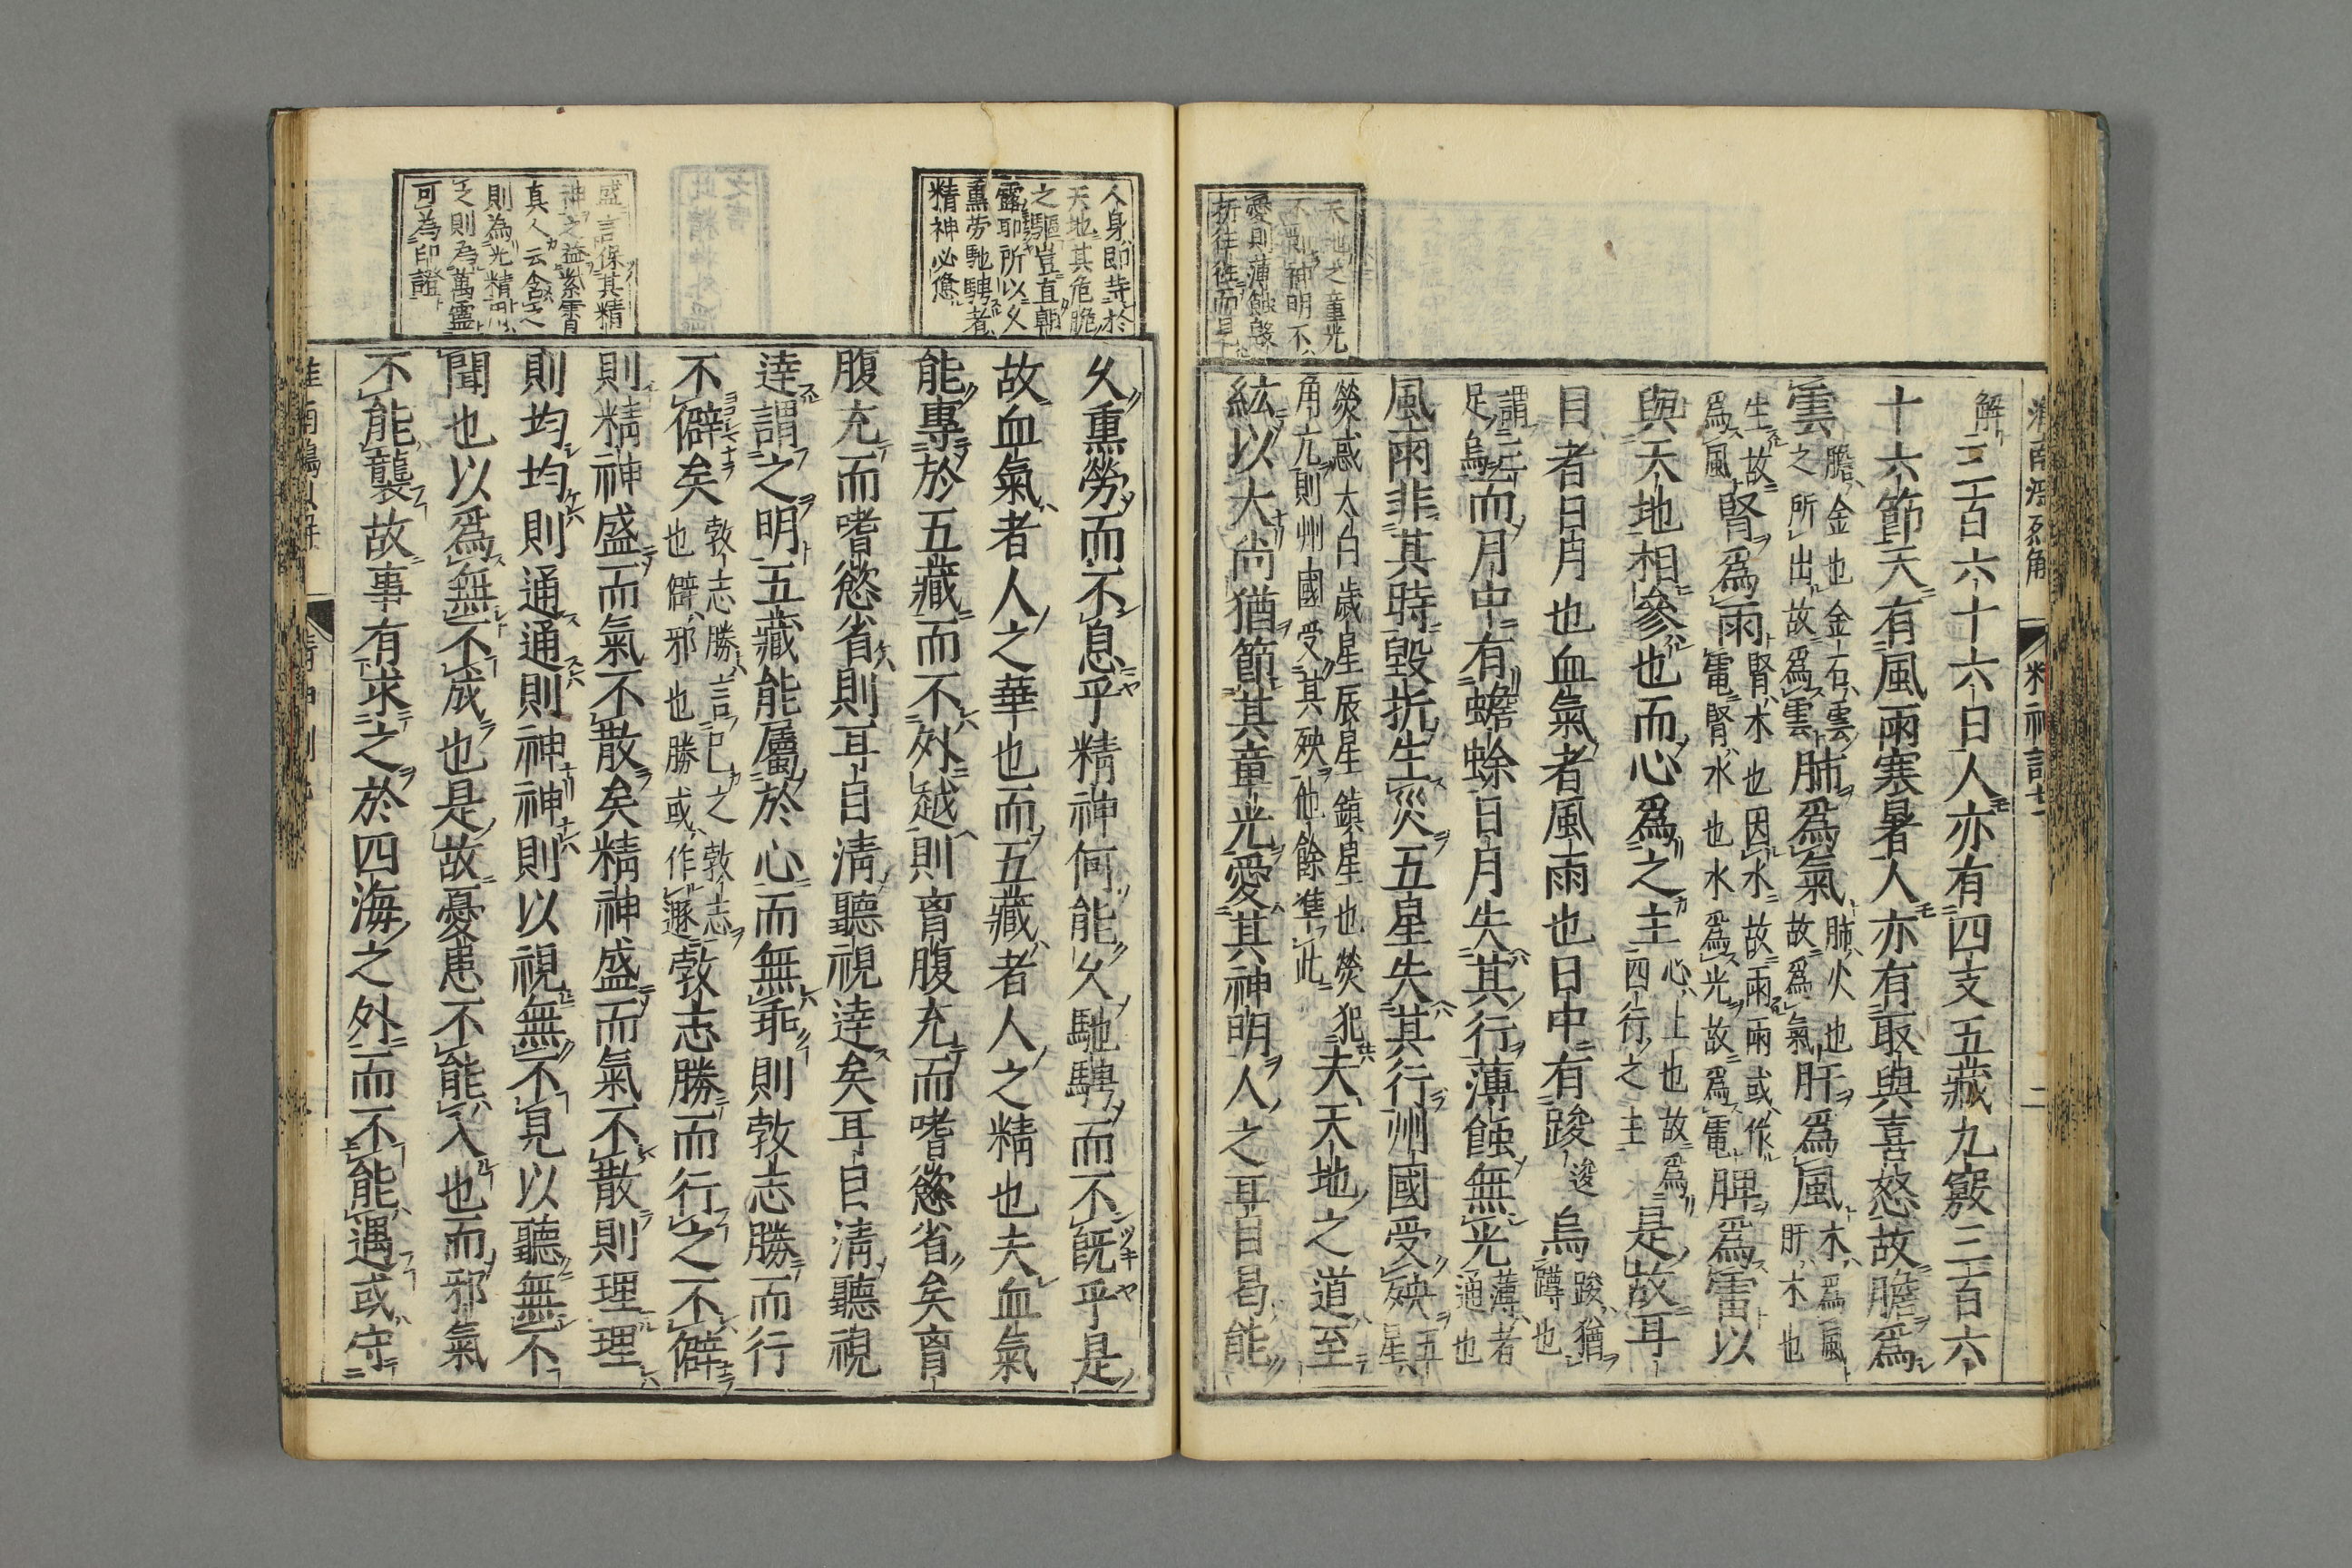 天地之章光
不則神明不
愛則薄蝕毀
折往往而見
解三百六十六日人亦有四支五藏九竅三百六
十六節天有風雨寒暑人亦有取與喜怒故膽爲
雲膽金也金石雲之所出故爲雲肺爲氣肺火也故爲氣肝爲風木爲風肝木也
生故爲風腎爲雨腎水也因水故雨雨或作電腎水也水爲光故爲電脾爲雷以
與天地相參也而心爲之主心上也故爲四行之主是故耳
目者日月也血氣者風雨也日中有踆逡烏踆猶蹲也
謂三足烏而月中有蟾蜍日月失其行薄蝕無光薄者通也
風雨非其時毀折生災五星失其行州國受殃五星
熒惑太白歲星辰星鎮星也熒犯角亢則州國受其殃他餘準此夫天地之道至
絃以大尚猶節其章光愛其神明人之耳目曷能
人身即寺於
天地其危脆
之軀豈直朝
露耶所以久
熏勞馳騁者
精神必憊
盛言保其精
神之益紫霄
真人云含之
則為光精用
之則為萬靈
可為印證
久熏勞而不息乎精神何能久馳騁而不既乎是
故血氣者人之華也而五藏者人之精也夫血氣
能專於五藏而不外越則胷腹充而嗜慾省矣胷
腹充而嗜慾省則耳目清聽視達矣耳目清聽視
達謂之明五藏能屬於心而無乖則敦志勝而行
不僻矣敦志勝言己之敦志也僻邪也勝或作遯敦志勝而行之不僻
則精神盛而氣不散矣精神盛而氣不散則理理
則均均則通通則神神則以視無不見以聽無不
聞也以爲無不成也是故憂患不能入也而邪氣
不能襲故事有求之於四海之外而不能遇或守